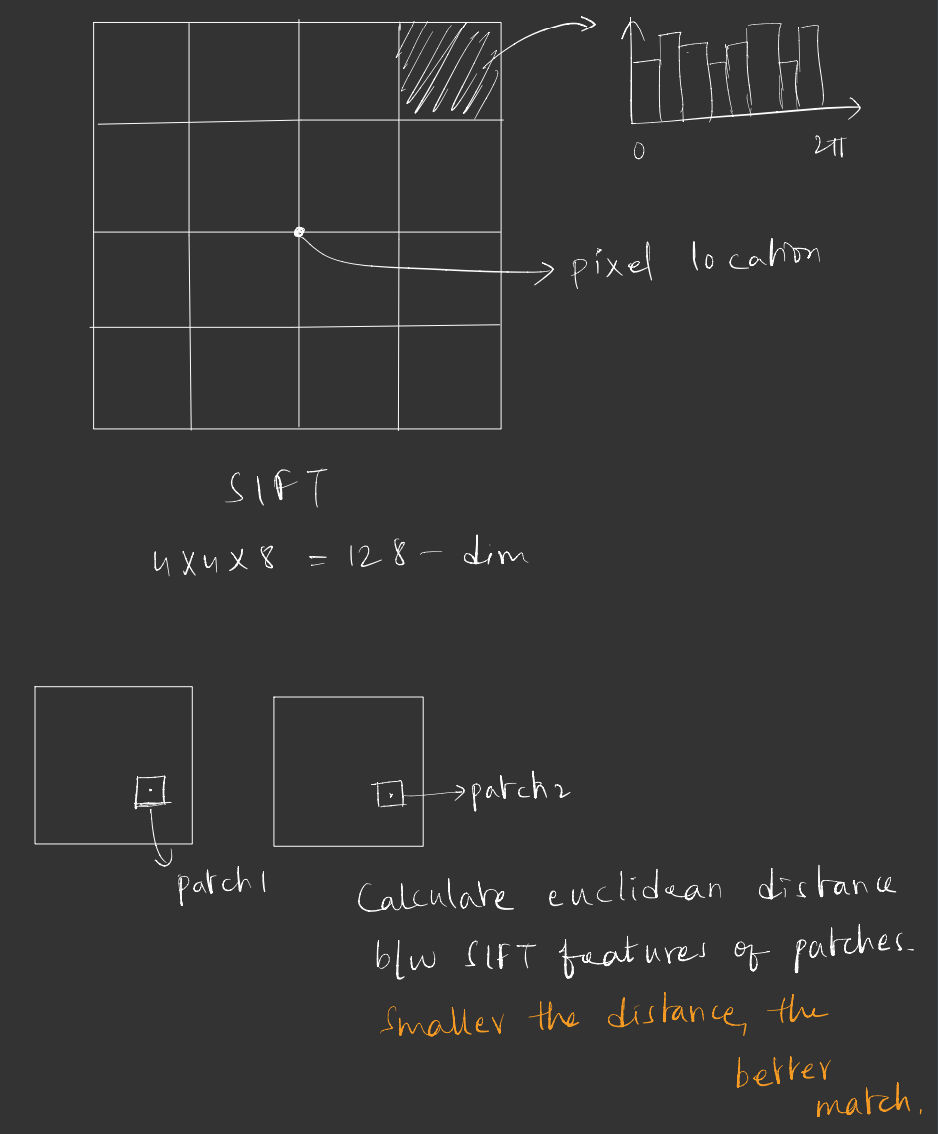 0
2π
pixel location
SIFT
4x4x8 = 128 - dim
patch2
patch1
Calculate euclidean distance
b/w SIFT features of patches.
Smaller the distance, the
better
match.